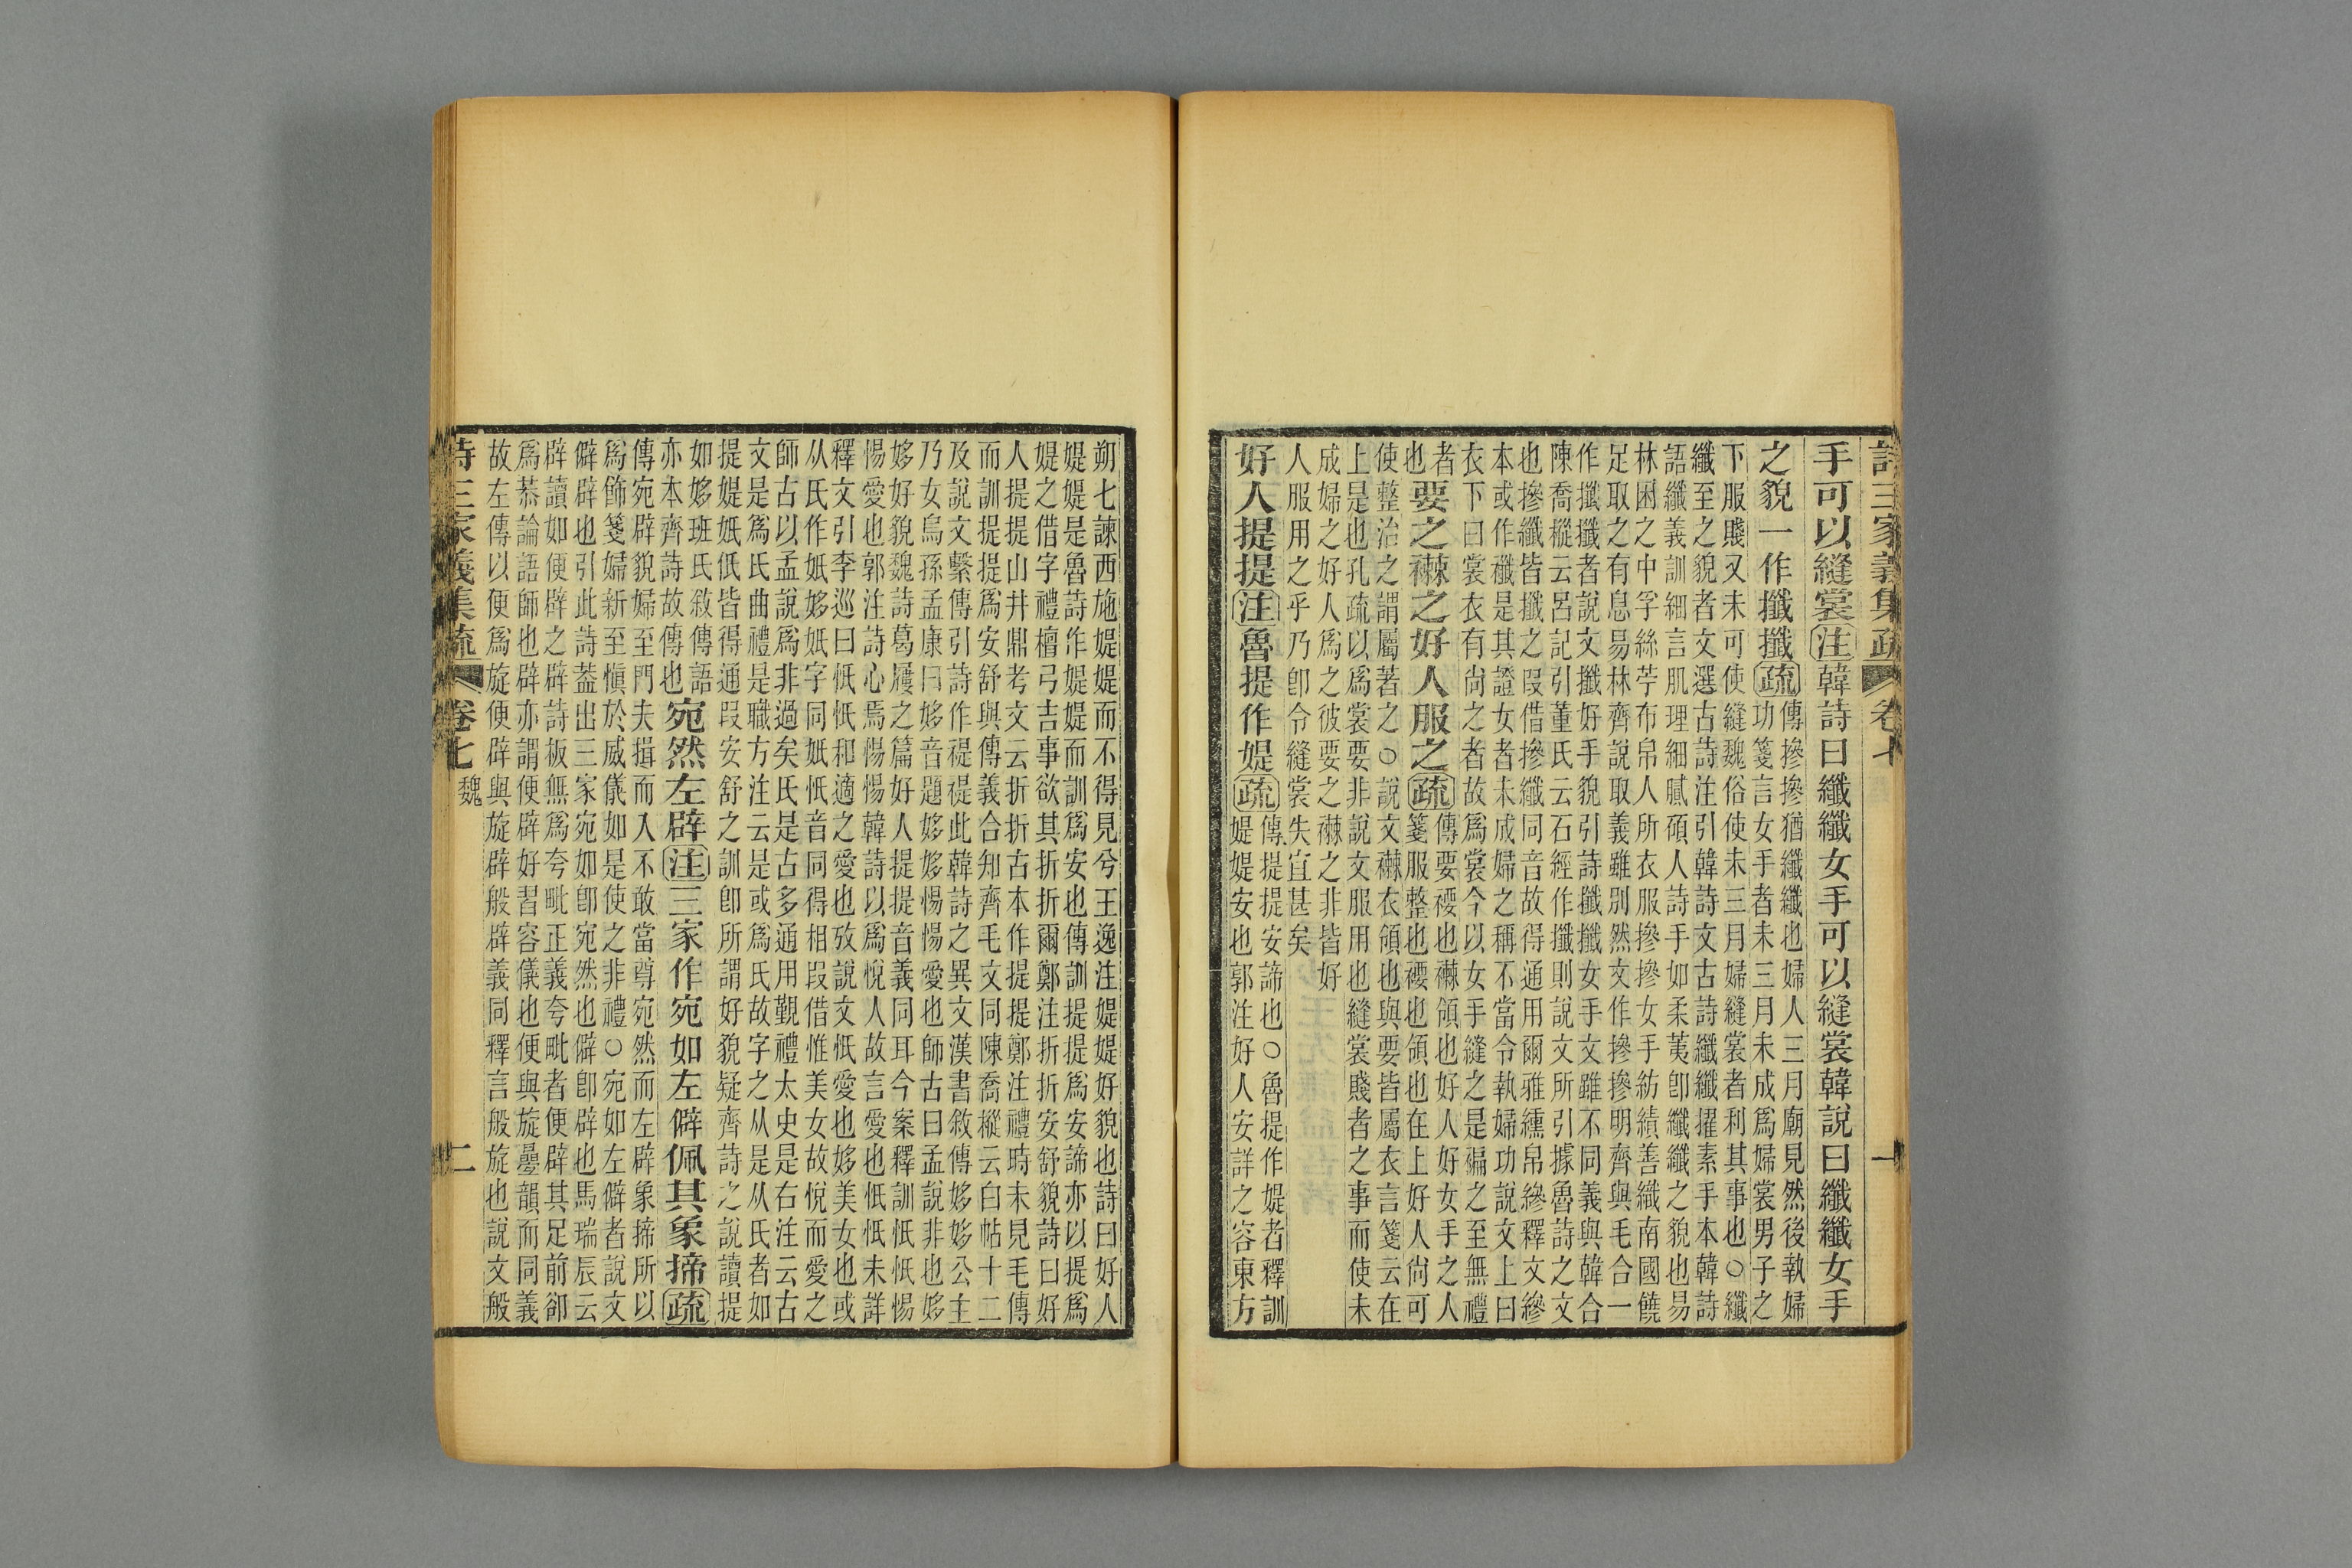 詩三家義集疏 卷七 一
手可以縫裳注韓詩曰纖纖女手可以縫裳韓說曰纖纖女手
之貌一作攕攕疏傳摻摻猶纖纖也婦人三月廟見然後執婦
功箋言女手者未三月未成爲婦裳男子之
下服賤又未可使縫魏俗使未三月婦縫裳者利其事也○纖
纖至之貌者文選古詩注引韓詩文古詩纖纖擢素手本韓詩
語纖義訓細言肌理細膩碩人詩手如柔荑卽纖纖之貌也易
林困之中孚絲苧布帛人所衣服摻摻女手紡績善織南國饒
足取之有息易林齊說取義雖別然文作摻摻明齊與毛合一
作攕攕者說文攕好手貌引詩攕攕女手文雖不同義與韓合
陳喬樅云呂記引董氏云石經作攕則說文所引據魯詩之文
也摻纖皆攕之叚借摻纖同音故得通用爾雅纁帛縿釋文縿
本或作襳是其證女者未成婦之稱不當令執婦功說文上曰
衣下曰裳衣有尙之者故爲裳今以女手縫之是褊之至無禮
者
也要之襋之好人服之疏傳要褄也襋領也好人好女手之人
箋服整也褄也領也在上好人尙可
使整治之謂屬著之○說文襋衣領也與要皆屬衣言箋云在
上是也孔疏以爲裳要非說文服用也縫裳賤者之事而使未
成婦之好人爲之彼要之襋之非皆好
人服用之乎乃卽令縫裳失宜甚矣
好人提提注魯提作媞疏傳提提安諦也○魯提作媞者釋訓
媞媞安也郭注好人安詳之容東方
朔七諫西施媞媞而不得見兮王逸注媞媞好貌也詩曰好人
媞媞是魯詩作媞媞而訓爲安也傳訓提提爲安諦亦以提爲
媞之借字禮檀弓吉事欲其折折爾鄭注折折安舒貌詩曰好
人提提山井鼎考文云折折古本作提提鄭注禮時未見毛傳
而訓提提爲安舒與傳義合知齊毛文同陳喬樅云白帖十二
及說文繫傳引詩作禔禔此韓詩之異文漢書敘傳姼姼公主
乃女烏孫孟康曰姼音題姼姼惕惕愛也師古曰孟說非也姼
姼好貌魏詩葛屨之篇好人提提音義同耳今案釋訓忯忯惕
惕愛也郭注詩心焉惕惕韓詩以爲悅人故言愛也忯忯未詳
釋文引李巡曰忯忯和適之愛也攷說文忯愛也姼美女也或
从氏作妷姼妷字同妷忯音同得相叚借惟美女故悅而愛之
師古以孟說爲非過矣氏是古多通用覲禮太史是右注云古
文是爲氏曲禮是職方注云是或爲氏故字之从是从氏者如
提媞妷低皆得通叚安舒之訓卽所謂好貌疑齊詩之說讀提
如姼班氏敘傳語
亦本齊詩故傳也宛然左辟注三家作宛如左僻佩其象揥疏
傳宛辟貌婦至門夫揖而入不敢當尊宛然而左辟象揥所以
爲飾箋婦新至愼於威儀如是使之非禮○宛如左僻者說文
僻辟也引此詩葢出三家宛如卽宛然也僻卽辟也馬瑞辰云
辟讀如便辟之辟詩板無爲夸毗正義夸毗者便辟其足前卻
爲恭論語師也辟亦謂便辟好習容儀也便與旋疊韻而同義
故左傳以便爲旋便辟與旋辟般辟義同釋言般旋也說文般
詩三家義集疏 卷七 魏 二